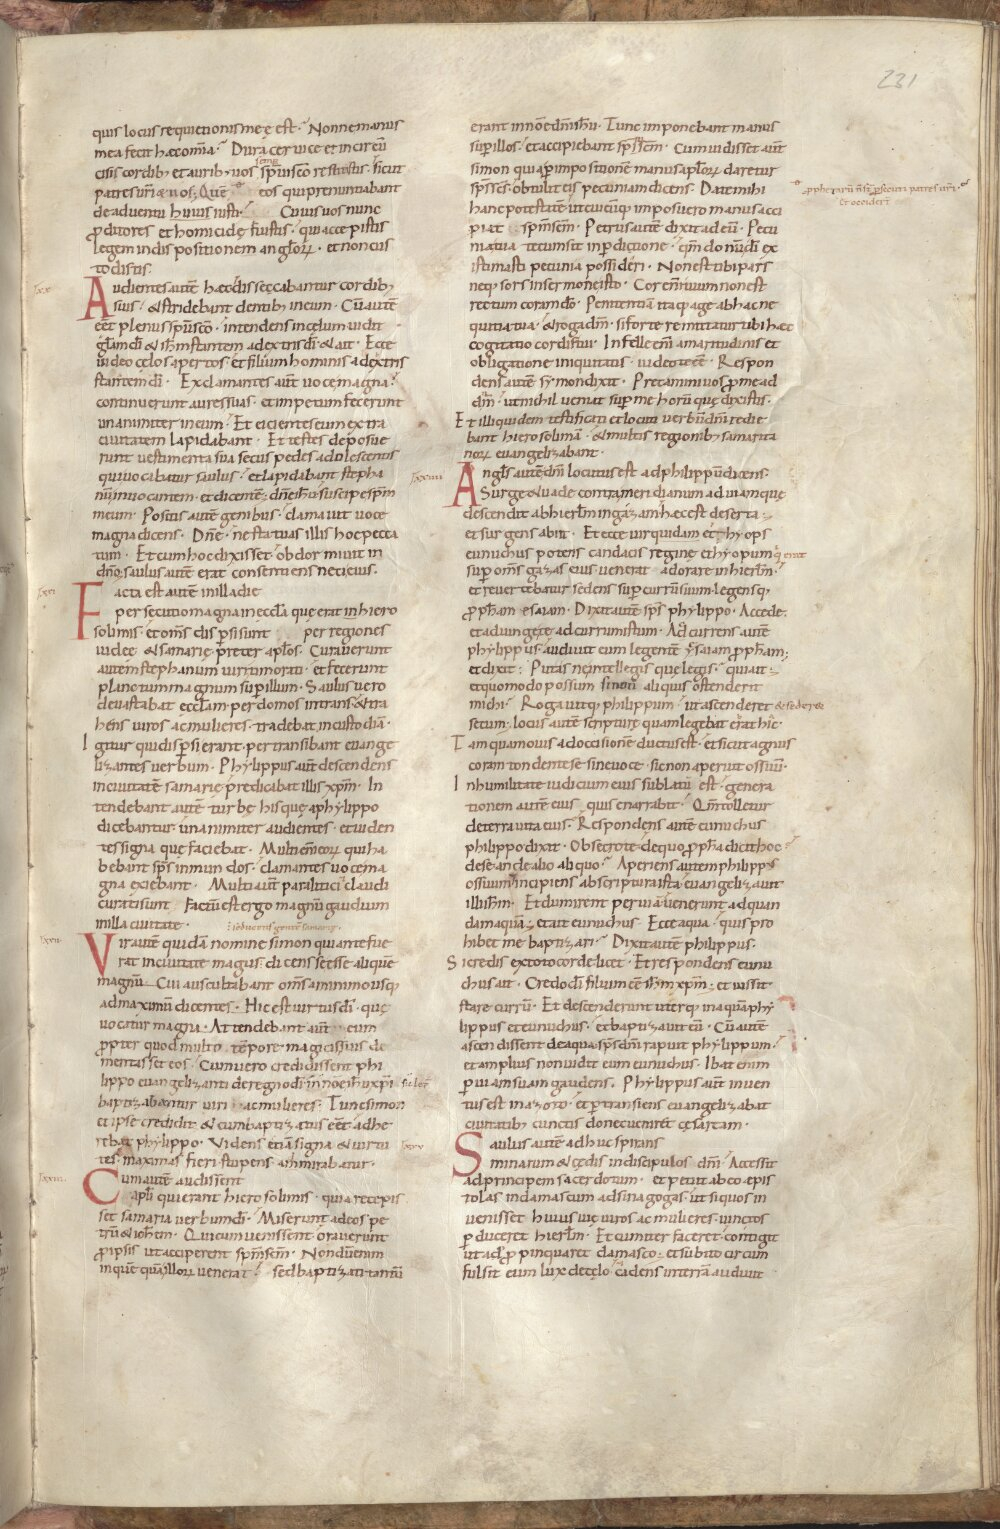 231
quis locus requietionis meę est· Nonne manus
mea fecit hęc om̄ia· Dura cervice et incircū
cisis cordib; et auribus, vos semp sp̄ui sco restitistis· sicut
patres vr̄i & vos; Quē eos qui prenuntiabant
de adventu huius iusti· Cuius vos nunc
ꝓditores et homicidę fuistis· qui accepistis
legem in dispositionem angl̄orꝝ· et non cus
todistis·
lxx
Audientes autē hęc dissecabantur cordib;
suis· & stridebant dentib; in eum· Cū autē
eēt plenus sp̄u sco· intendens in cęlum vidit
gl̄am dī & ih̄m stantem a dextris dī & ait· Ecce
video celos apertos· et filium hominis a dextris
stantem dī· Exclamantes aūt voce magna·
continuerunt aures suas· et impetum fecerunt
unanimiter in eum· Et eicientes eum extra
civitatem lapidabant· Et testes deposue
runt vestimenta sua secus pedes adolescentis
qui vocabatur saulus· et lapidabant stepha
nū invocantem· et dicentē· dn̄e ih̄u suscipe sp̄m
meum· Positis autē genibus· clamavit voce
magna dicens· Dn̄e· ne statuas illis hoc pecca
tum· Et cum hoc dixisset· obdormivit in
dn̄o· saulus autē erat consentiens neci eius·
Facta est autē in illa die
persecutio magna in eccl̄a que erat in hiero
solimis· et om̄s dispersi sunt per regiones
iudeę & samarię pręter apl̄os· Curaverunt
autem stephanum viri timorati· et fecerunt
planctum magnum sup illum· Saulus vero
devastabat ecclam per domos intrans· & tra
hens viros ac mulieres· tradebat in custodiā·
Igitur qui dispersi erant· pertransibant evange
lizantes verbum· Phylippus aūt descendens
in civitatē samarię predicabat illis xp̄m· In
tendebant autē turbę his quę a phylippo
dicebantur unanimiter audientes· et viden
tes signa que faciebat· Multi em̄ eorꝝ qui ha
bebant sp̄s inmundos· clamantes voce ma
gna exiebant· Multi aūt paralitici & claudi
curati sunt Factū est ergo magnū gaudium
in illa civitate·
seducens gentē samarię·
lxxvii
Vir autē quidā nomine simon qui ante fue
rat in civitate magus· dicens se esse aliquē
magnū· Cui auscultabant om̄s a minimo usq;
ad maximū dicentes· Hic est virtus dī· quę
vocatur magna· Attendebant aūt eum
ꝓpter quod multo tēpore magicis suis de
mentasset eos· Cum vero credidissent phi
lippo evangelizanti de regno dī in nōe ih̄u xp̄i
baptizabantur viri ac mulieres· Tunc simon
et ipse credidit· & cum baptizatus eēt adhe
rebat phylippo· Videns etiā signa & virtu
tes maximas fieri· stupens ammirabatur·
lxxviii
Cum autē audissent
apl̄i qui erant hierosolimis· quia recepis
set samaria verbum dī· Miserunt ad eos pe
trū & ioh̄em· Qui cum venissent· oraverunt
ꝓ ipsis ut acciperent sp̄m sc̄m· Nondū enim
in quē quā illorꝝ venerat· sed baptizati tantū
erant in nōe dn̄i ih̄u· Tunc imponebant manus
sup illos· et accipiebant sp̄m sc̄m· Cum vidisset aūt
simon quia p impositionē manus apl̄orꝝ daretur
sp̄s sc̄s· obtulit eis pecuniam dicens· Date mihi
hanc potestatē ut cuicūq; imposuero manus acci
piat sp̄m sc̄m· Petrus autē dixit ad eū· Pecu
nia tua tecum sit in pdictione· qm̄ donū dī ex
istimasti pecunia possideri· Non est tibi pars
neq; sors in sermone isto· Cor enī tuum non est
rectum coram dō· Penitentiā itaq; age ab hac ne
quitia tua· & roga dm̄· si forte remittatur tibi hęc
cogitatio cordis tui· In felle em̄ amaritudinis et
obligatione iniquitatis· video te eē· Respon
dens autē symon dixit· Precamini vos ꝓ me ad
dm̄· ut nichil veniat super me horū quę dixistis·
Et illi quidem testificati et locuti verbū dn̄i redie
bant hierosolimā· & multis regionib; samarita
norꝝ evangelizabant·
Angl̄s autē dn̄i locutus est ad philippū dicens·
Surge & vade contra meridianum ad viam que
descendit ab hierl̄m in gazam· hęc est deserta·
et surgens abiit· Et ecce vir quidam ethyops
eunuchus potens candacis regine ethyopum q̄ erat
sup om̄s gazas eius venerat adorare in hierl̄m·
et revertebatur sedens sup currū suum· legensq;
ꝓph̄am esaiam· Dixit autē sp̄s phylippo· Accede·
et adiunge te ad currum istum· Adcurrens autē
phylippus· audivit eum legentē ysaiam ꝓph̄am;
et dixit· Putas ne intellegis que legis· qui ait·
et quomodo possum si non aliquis ostenderit
michi· Rogavitq; philippum· ut ascenderet & sederet
secum· locus autē scripturę quam legebat erat hic·
Tamquam ovis ad occisionē ductus est· et sicut agnus
coram tondente se sine voce· sic non aperuit os suū·
In humilitate iudicium eius sublatū est· genera
tionem autē eius quis enarrabit· Qm̄ tolletur
de terra vita eius· Respondens autē eunuchus
philippo dixit· Obsecro te de quo ꝓph̄a dicit hoc
de se an de alio aliquo· Aperiens autem philippus
os suum & incipiens ab scriptura ista· evangelizavit
illi ih̄m· Et dum irent per viā venerunt ad quan
dam aquā· et ait eunuchus· Ecce aqua· quis pro
hibet me baptizari· Dixit autē philippus·
Si credis ex toto corde licet· Et respondens eunu
chus ait· Credo dī filium eē ih̄m xp̄m· et iussit
stare currū· Et descenderunt uterq; in aquā phy
lippus et eunuchus· et baptizavit eū· Cū autē
ascendissent de aqua· sp̄s dn̄i rapuit phylippum·
et amplius non vidit eum eunuchus· Ibat enim
p viam suam gaudens· Phylippus aūt inven
tus est in azoto· et ptransiens evangelizabat
civitatib; cunctis donec veniret cęsaream·
lxxv
Saulus autē adhuc spirans
minarum & cędis in discipulos dn̄i· Accessit
ad principem sacerdotum· et petiit ab eo epis
tolas in damascum ad sinagogas· ut si quos in
venisset huius vię viros ac mulieres· vinctos
pduceret hierl̄m· Et cum iter faceret· contigit
ut adꝓpinquaret damasco· et subito circum
fulsit eum lux de cęlo· cadens in terrā audivit
ꝓphetarū n̄ sūt ꝓsecuti patres vr̄i·
et occiderūt